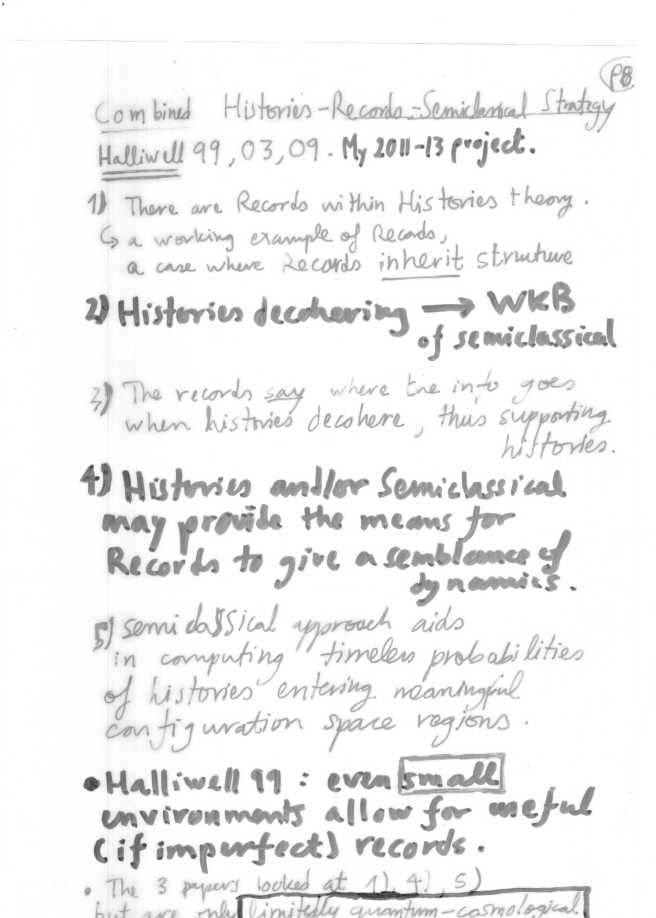 P8
Combined Histories-Records-Semiclassical Strategy
Halliwell 99, 03, 09. My 2011-13 project.
1) There are Records within Histories theory.
↳ a working example of Records,
a case where Records inherit structure
2) Histories decohering → WKB
of semiclassical
3) The records say where the info goes
when histories decohere, thus supporting
histories.
4) Histories and/or Semiclassical
may provide the means for
Records to give a semblance of
dynamics.
5) semiclassical approach aids
in computing timeless probabilities
of histories entering meaningful
configuration space regions.
• Halliwell 99 : even small
environments allow for useful
(if imperfect) records.
• The 3 papers looked at 1), 4), 5)
but are only limitedly quantum-cosmological